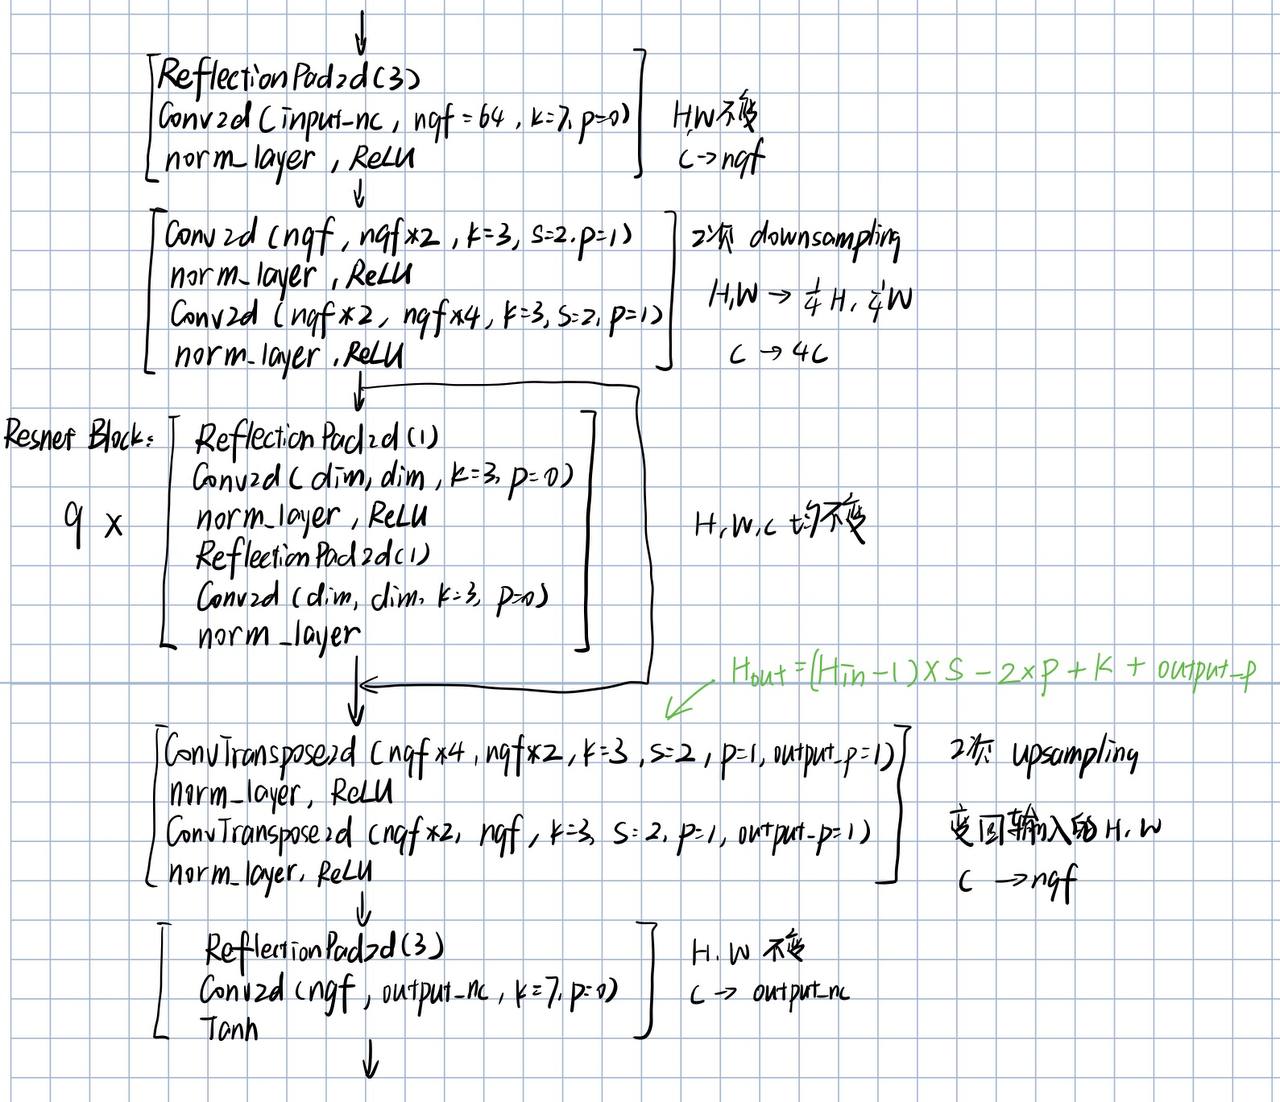 ReflectionPad2d(3)
Conv2d (input_nc, ngf=64, k=7, p=0)
norm_layer, ReLU
H,W不变
C→ngf
Conv2d (ngf, ngf*2, k=3, s=2, p=1)
norm_layer, ReLU
Conv2d (ngf*2, ngf*4, k=3, s=2, p=1)
norm_layer, ReLU
2次 downsampling
H,W → 1/4 H, 1/4 W
C → 4C
Resnet Block:
9 ×
ReflectionPad2d(1)
Conv2d (dim, dim, k=3, p=0)
norm_layer, ReLU
ReflectionPad2d(1)
Conv2d (dim, dim, k=3, p=0)
norm_layer
H,W,C均不变
Hout=(Hin-1)×S-2×P+K+output_p
ConvTranspose2d (ngf*4, ngf*2, k=3, s=2, p=1, output_p=1)
norm_layer, ReLU
ConvTranspose2d (ngf*2, ngf, k=3, s=2, p=1, output_p=1)
norm_layer, ReLU
2次 upsampling
变回输入的H,W
C → ngf
ReflectionPad2d(3)
Conv2d (ngf, output_nc, k=7, p=0)
Tanh
H,W 不变
C → output_nc